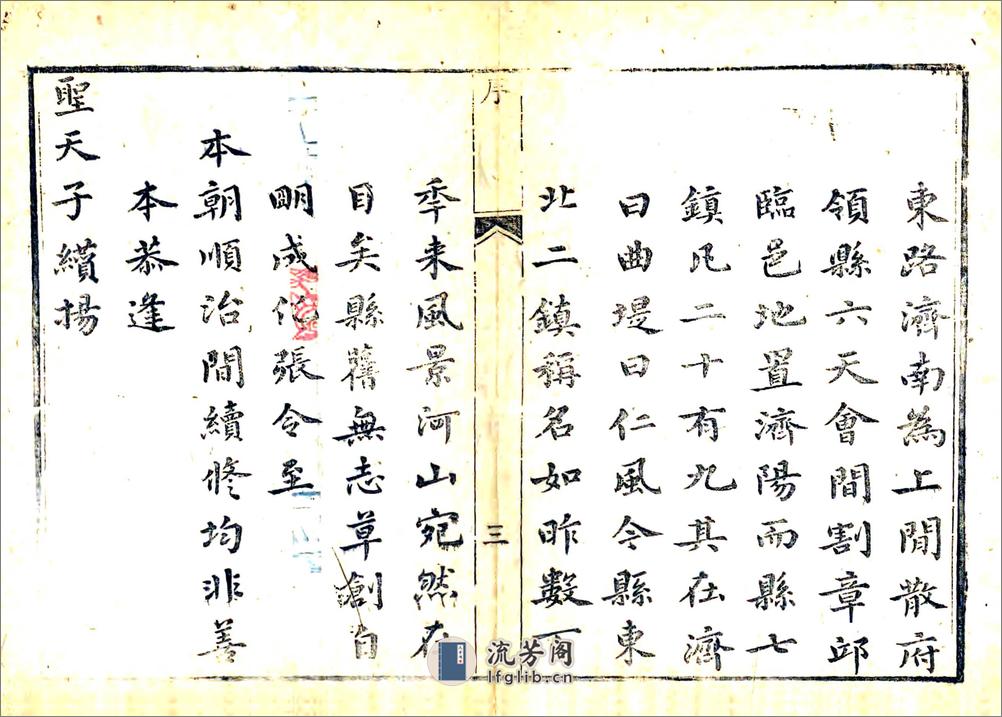 東路濟南為上閒散府
領縣六天會間割章邱
臨邑地置濟陽而縣七
鎮凡二十有九其在濟
曰曲堤曰仁風今縣東
北二鎮稱名如昨數百
序
三
季來風景河山宛然在
目矣縣舊無志草創自
明成化張令至
本朝順治間續修均非善
本恭逢
聖天子纘揚
流芳阁
lfglib.cn